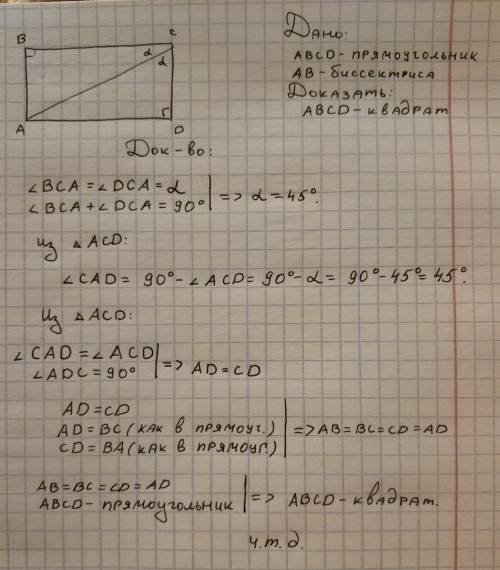 B
C
α
α
A
D
Дано:
ABCD - прямоугольник
AB - биссектриса
Доказать:
ABCD - квадрат
Док-во:
∠BCA = ∠DCA = α
∠BCA + ∠DCA = 90° | => α = 45°.
Из △ACD:
∠CAD = 90° - ∠ACD = 90° - α = 90° - 45° = 45°.
Из △ACD:
∠CAD = ∠ACD
∠ADC = 90° | => AD = CD
AD = CD
AD = BC (как в прямоуг.)
CD = BA (как в прямоуг.) | => AB = BC = CD = AD
AB = BC = CD = AD
ABCD - прямоугольник | => ABCD - квадрат.
ч.т.д.